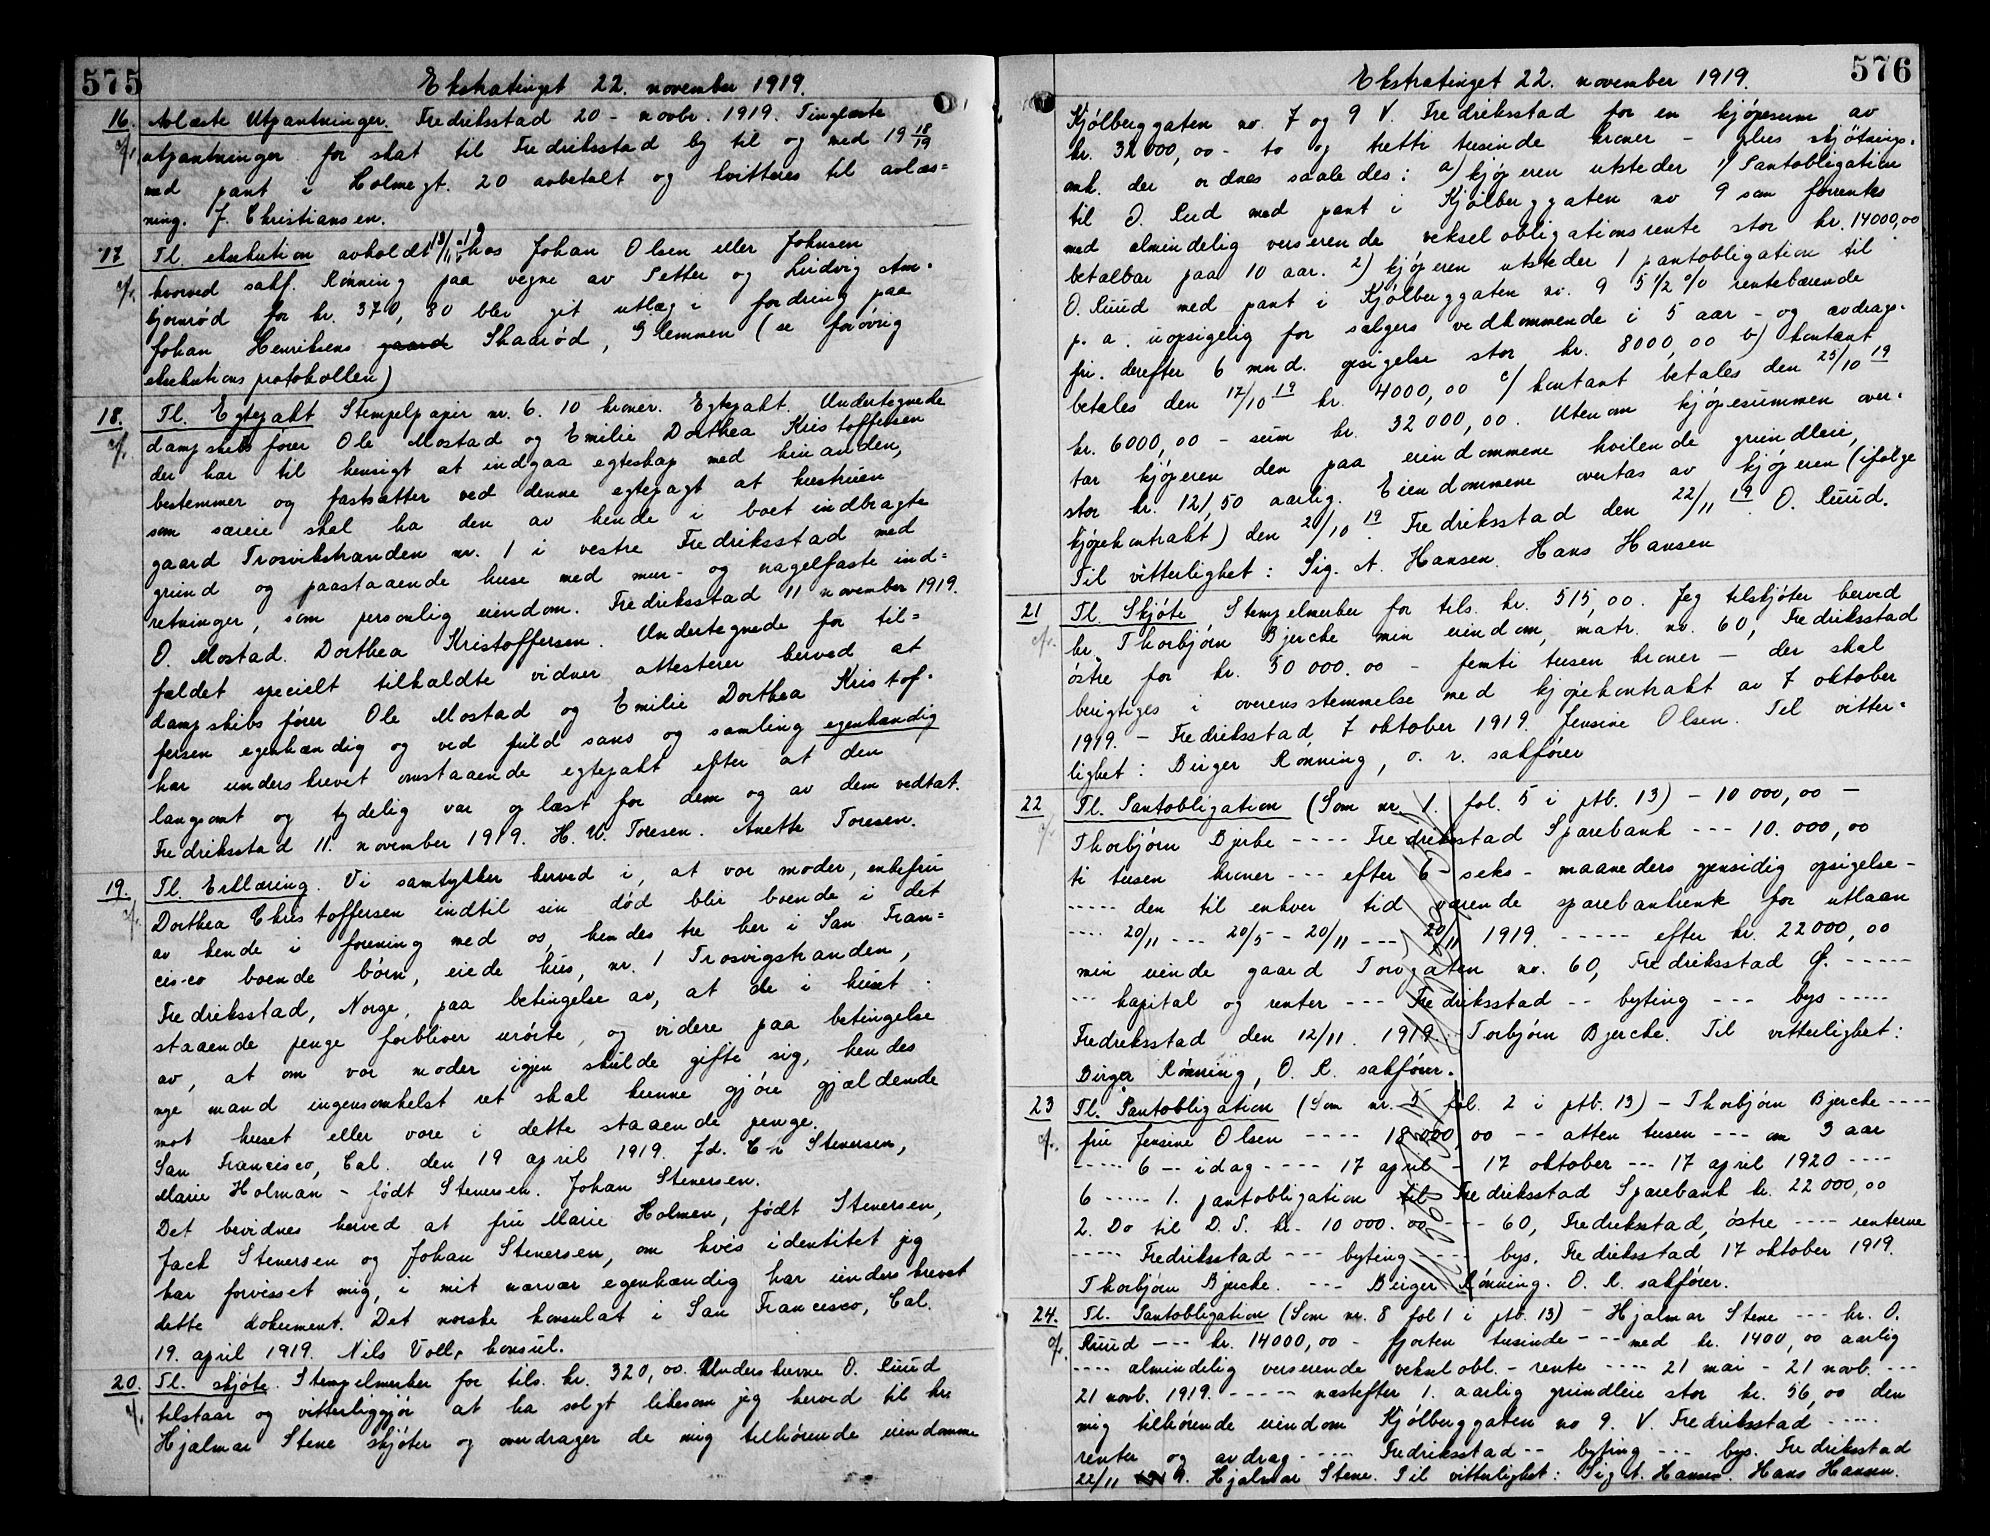 575
Ekstratinget 22. november 1919.
16. Avlæste Utpantninger. Fredriksstad 20 - novbr. 1919. Tinglæste
utpantninger for skat til Fredriksstad by til og med 19 18/19
med pant i Holmegt. 20 avbetalt og kvitteres til avlæs=
ning. J. Christiansen.
17 Tl. eksekution avholdt 13/11 19 hos Johan Olsen eller Johnsen
hvorved sakf. Rønning paa vegne av Petter og Ludvig Am-
bjørnrød for kr. 370,80 blev git utlæg i fordring paa
Johan Henriksens gaard Skaarød, Glemmen (se forøvrig
eksekutionsprotokollen)
18. Tl. Egtepakt Stempelpapir nr. 6. 10 kroner. Egtepakt. Undertegnede
dampskibsfører Ole Mostad og Emilie Dorthea Kristoffersen
der har til hensigt at indgaa egteskap med hinanden,
bestemmer og fastsætter ved denne egtepagt at hustruen
som særeie skal ha den av hende i boet indbragte
gaard Trosvikstranden nr. 1 i vestre Fredriksstad med
grund og paastaaende huse med mur- og nagelfaste ind=
retninger, som personlig eiendom. Fredriksstad 11 november 1919.
O. Mostad. Dorthea Kristoffersen. Undertegnede for til=
fældet specielt tilkaldte vidner attesterer herved at
dampskibsfører Ole Mostad og Emilie Dorthea Kristof-
fersen egenhændig og ved fuld sans og samling egenhændig
har underskrevet omstaaende egtepakt efter at den
langsomt og tydelig var oplæst for dem og av dem vedtat.
Fredriksstad 11 november 1919. H. W. Toresen. Anette Toresen.
19. Tl. Erklæring. Vi samtykker herved i, at vor moder, enkefru
Dorthea Christoffersen indtil sin død blir boende i det
av hende i forening med os, hendes tre her i San Fran=
cis-co boende børn, eiede hus, nr. 1 Trosvigstranden,
Fredriksstad, Norge, paa betingelse av, at de i huset
staaende penge forbliver urørte, og videre paa betingelse
av, at om vor moder igjen skulde gifte sig, hendes
nye mand ingensomhelst ret skal kunne gjøre gjældende
mot huset eller vore i dette staaende penge.
San Francisco, Cal. den 19 april 1919. Jd. C-i Stenersen,
Marie Holman - født Stenersen. Johan Stenersen.
Det bevidnes herved at fru Marie Holmen, født Stenersen,
Jack Stenersen og Johan Stenersen, om hvis identitet jeg
har forvisset mig, i mit nærvær egenhændig har underskrevet
dette dokument. Det norske konsulat i San Francisco, Cal.
19. april 1919. Nils Voll, konsul.
20. Tl. skjøte. Stempelmerker for tils. kr. 320,00. Underskrevne O. Ruud
tilstaar og vitterliggjør at ha solgt likesom jeg herved til hr.
Hjalmar Stene skjøter og overdrager de mig tilhørende eiendomme
576
Ekstratinget 22. november 1919.
Kjølberggaten no. 7 og 9 V. Fredriksstad for en kjøpesum av
kr. 32000,00 - to og tretti tusinde kroner - plus skjøtnings-
omk. der ordnes saaledes: a) kjøperen utsteder 1) Pantobligation
til O. Rud med pant i Kjølberggaten no 9 som forrentes
med almindelig verserende vekselobligationsrente stor kr. 14000,00
betalbar paa 10 aar. 2) kjøperen utsteder 1 pantobligation til
O. Ruud med pant i Kjølberggaten no. 9 5 1/2 % rentebærende
p. a. uopsigelig for sælgers vedkommende i 5 aar - og avdrags-
fri. derefter 6 mnd. opsigelse stor kr. 8000,00 b) kontant
betales den 17/10 19 kr. 4000,00 c/ kontant betales den 25/10 19
kr. 6000,00 - sum kr. 32000,00. Utenom kjøpesummen over-
tar kjøperen den paa eiendommene hvilende grundleie,
stor kr. 121,50 aarlig. Eiendommene overtas av kjøperen (ifølge
kjøpekontrakt) den 21/10 19. Fredriksstad den 22/11 19. O. Ruud.
Til vitterlighet: Sig. A. Hansen. Hans Hansen
21 Tl. Skjøte Stempelmerker for tils. kr. 515,00. Jeg tilskjøter herved
hr. Thorbjørn Bjercke min eiendom, matr. no. 60, Fredriksstad
østre for kr. 50000.00 - femti tusen kroner - der skal
berigtiges i overensstemmelse med kjøpekontrakt av 7 oktober
1919. - Fredriksstad 7 oktober 1919. Jensine Olsen. Til vitter-
lighet: Birger Rønning, o. r. sakfører
22 Tl. Pantobligation (Som nr. 1. fol. 5 i ptb. 13) - 10000,00 -
Thorbjørn Bjerke ---- Fredriksstad Sparebank --- 10.000,00
ti tusen kroner --- efter 6 - seks - maaneders gjensidig opsigelse -
----- den til enhver tid værende sparebankrente for utlaan
---- 20/11 --- 20/5 - 20/11 --- 20/11 1919. ----- efter kr. 22000,00
min eiende gaard Torvgaten no. 60, Fredriksstad Ø. -----
--- kapital og renter --- Fredriksstad -- byting --- bys -----
Fredriksstad den 12/11. 1919. Torbjørn Bjercke. Til vitterlighet:
Birger Rønning, O. R. sakfører.
23 Tl. Pantobligation (Som nr. 5 fol. 2 i ptb. 13) - Thorbjørn Bjercke ----
fru Jensine Olsen ---- 18000,00 -- atten tusen --- om 3 aar
----- 6 -- idag ---- 17 april - 17 oktober --- 17 april 1920 ----
6 ----- 1. pantobligation til Fredriksstad Sparebank kr. 22000,00
2. Do til D. S. kr. 10000.00 --- 60, Fredriksstad, østre ---- renterne
----- Fredriksstad --- byting --- bys. Fredriksstad 17 oktober 1919.
Thorbjørn Bjercke. --- Birger Rønning. O. R. sakfører.
24. Tl. Pantobligation (Som nr. 8 fol 1 i ptb. 13) - Hjalmar Stene --- hr. O.
Ruud --- kr. 14000,00 - fjorten tusinde --- med kr. 1400,00 aarlig
---- almindelig verserende veksel obl. - rente ---- 21 mai - 21 novb. ---
21 novb. 1919. ----- næstefter 1. aarlig grundleie stor kr. 56,00 den
mig tilhørende eiendom Kjølberggaten no 9. V. Fredriksstad -----
renter og avdrag - ---- Fredriksstad -- byting --- bys. Fredriksstad
22/11 1919. Hjalmar Stene. Til vitterlighet: Sig A. Hansen. Hans Hansen.